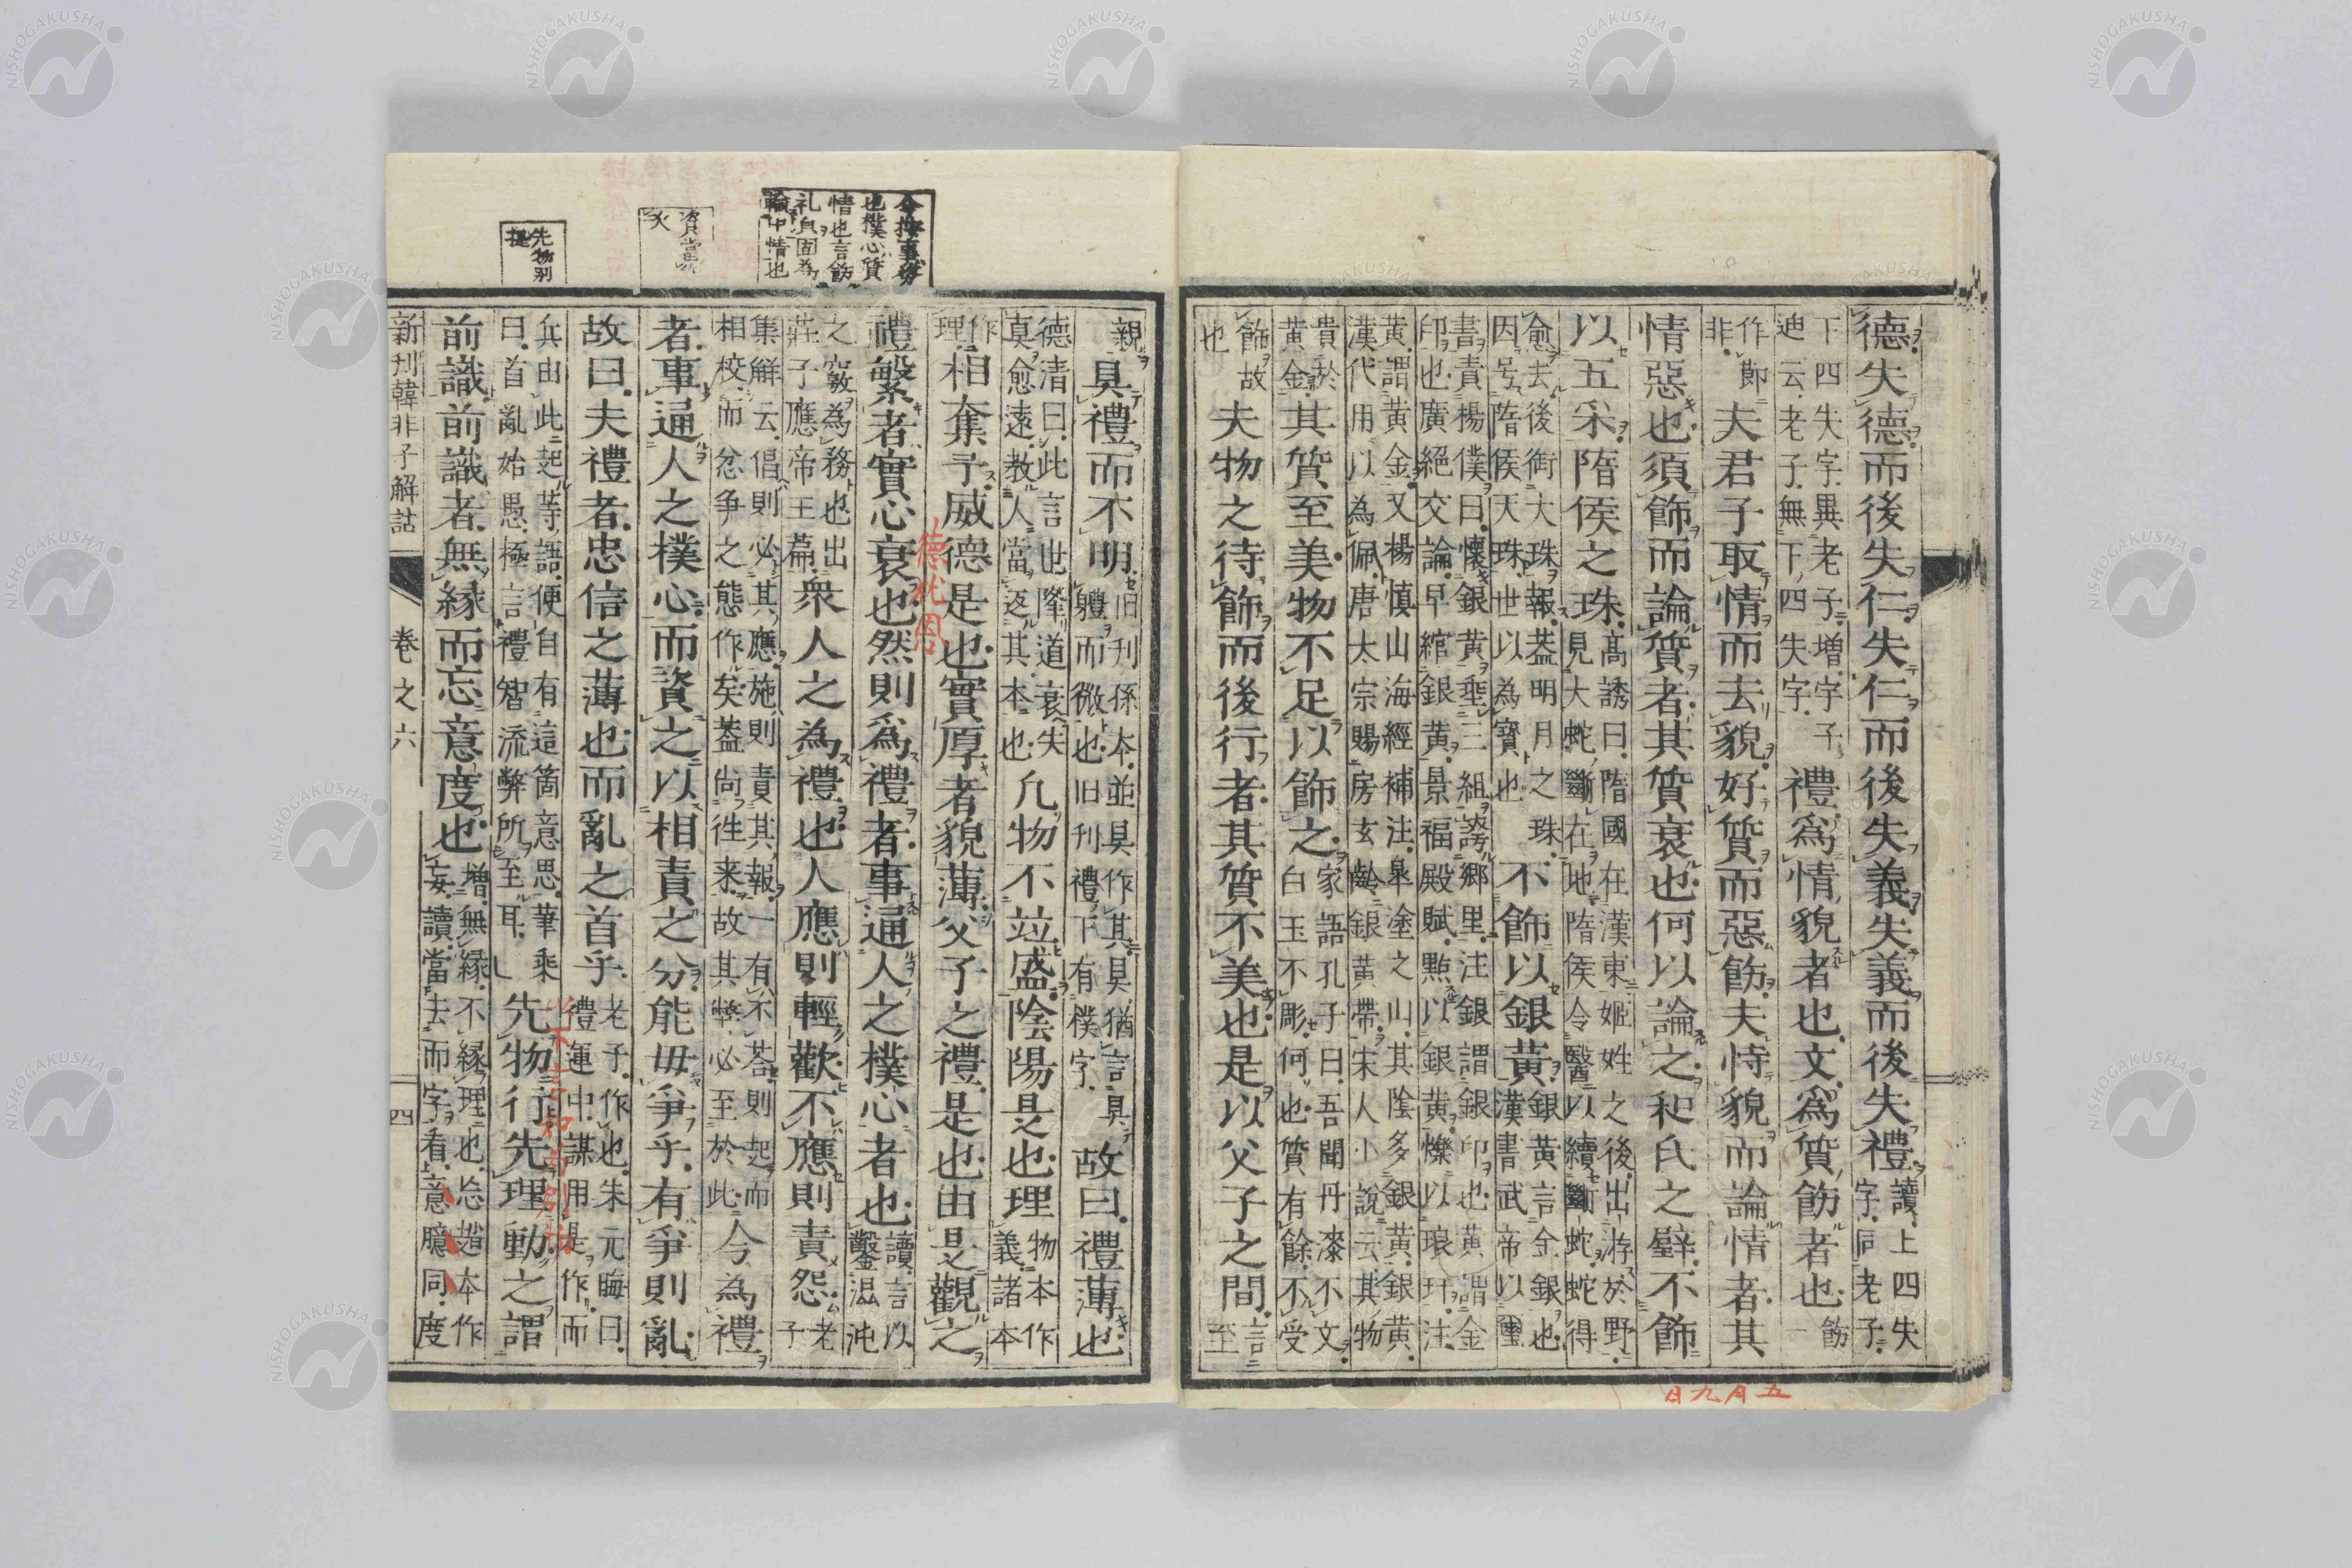 德失德而後失仁失仁而後失義失義而後失禮
讀上四失
字同老子
下四失字異老子增字子
迪云老子無下四失字
禮爲情貌者也文爲質飭者也
飭
作節
非
夫君子取情而去貌好質而惡飭夫恃貌而論情者其
情惡也須飾而論質者其質衰也何以論之和氏之璧不飾
以五采隋侯之珠
高誘曰隋國在漢東姬姓之後出游於野
見大蛇斷在地隋侯令醫以續斷蛇蛇得
愈去後銜大珠報蓋明月之珠
因号隋侯天珠世以為寶也
不飾以銀黃
銀黃言金銀也
漢書武帝以璽
書責楊僕曰懷銀黃垂三組誇鄉里注銀謂銀印也黃謂金
印也廣絕交論早綰銀黃景福殿賦點以銀黃爍以琅玕注
黃謂黃金又楊慎山海經補注皐塗之山其陰多銀黃銀黃
漢代用以為佩唐太宗賜房玄齡銀黃帶宋人小說云其物
貴於
黃金
其質至美物不足以飾之
家語孔子曰吾聞丹漆不文
白玉不彫何也質有餘不受
飾故
也
夫物之待飾而後行者其質不美也是以父子之間
言
至
五月九日
親
具禮而不明
旧刊孫本並具作其具猶言具
軆而微也旧刊禮下有樸字
故曰禮薄也
德清曰此言世降道衰失
真愈遠教人當返其本也
凡物不竝盛陰陽是也理
物本作
義諸本
作
理
相奪予威德是也實厚者貌薄父子之禮是也由是觀之
禮繁者實心衰也然則爲禮者事通人之樸心者也
讀言以
鑿混沌
之竅為務也出
莊子應帝王篇
衆人之為禮也人應則輕歡不應則責怨
老
子
集解云倡則必其應施則責其報一有不荅則起而
相校而忿争之態作矣蓋尚徃来故其弊必至於此
今為禮
者事通人之樸心而資之以相責之分能毋爭乎有爭則亂
故曰夫禮者忠信之薄也而亂之首乎
老子作也朱元晦曰
禮運中謀用是作而
兵由此起等語便自有這箇意思華乘
曰首亂始愚極言禮智流弊所至耳
先物行先理動之謂
前識前識者無縁而忘意度也
增無縁不縁理也忘趙本作
妄讀當去而字看意臆同度
新刊韓非子解詁 卷之六 四
也樸心質
情也言飭
礼貞固為
諭中情也
先物别
提